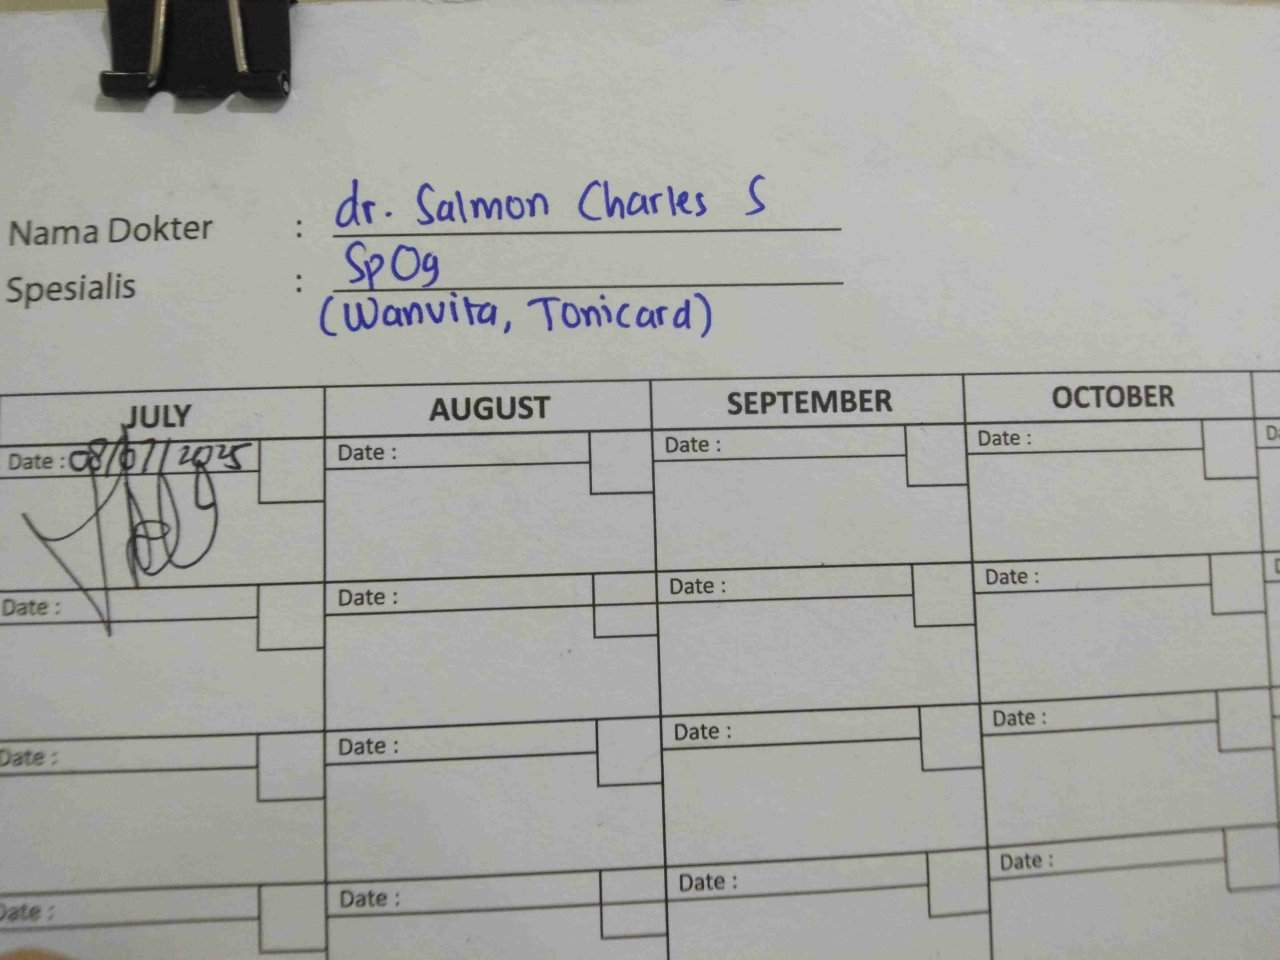 Nama Dokter : dr. Salmon Charles S
Spesialis : SpOg
(Wanvita, Tonicard)
JULY AUGUST SEPTEMBER OCTOBER
Date : 08/07/2025 Date : Date : Date :
Date : Date : Date : Date :
Date : Date : Date : Date :
Date : Date : Date : Date :